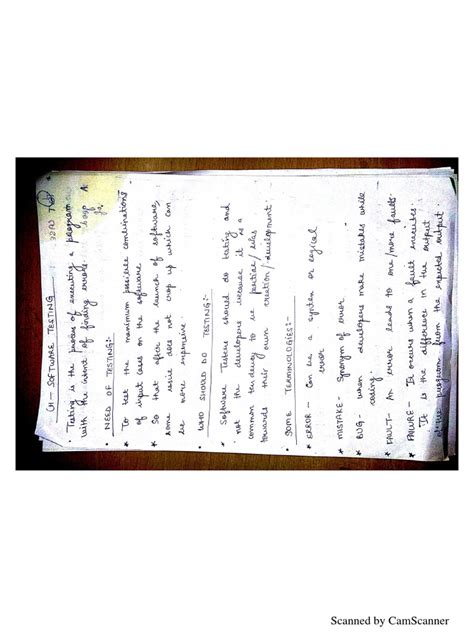 CH - SOFTWARE TESTING
· Testing is the process of executing a program
with the intent of finding errors.
· NEED OF TESTING:-
* To test the maximum possible combinations
of input cases on the software
* So that after the launch of software,
some issue does not crop up which can
be more expensive
· WHO SHOULD DO TESTING:-
* Software Testers should do testing and
not the developers because it is a
common tendency to be partial/bias
towards their own creation/development
· SOME TERMINOLOGIES:-
* ERROR - Can be a syntax or logical
error
* MISTAKE - Synonym of error
* BUG - when developers make mistakes while
coding.
* FAULT - An error leads to one/more faults
* FAILURE - It occurs when a fault executes.
It is the difference in the output
of the program from the expected output.
Scanned by CamScanner